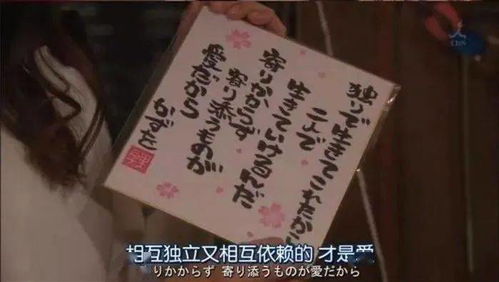 独りで生きてこれたから
二人で
生きていけるんだ
寄りかからず
寄り添うものが
愛だから
かずを
CBN
相互独立又相互依赖的 才是爱
りかからず 寄り添うものが愛だから